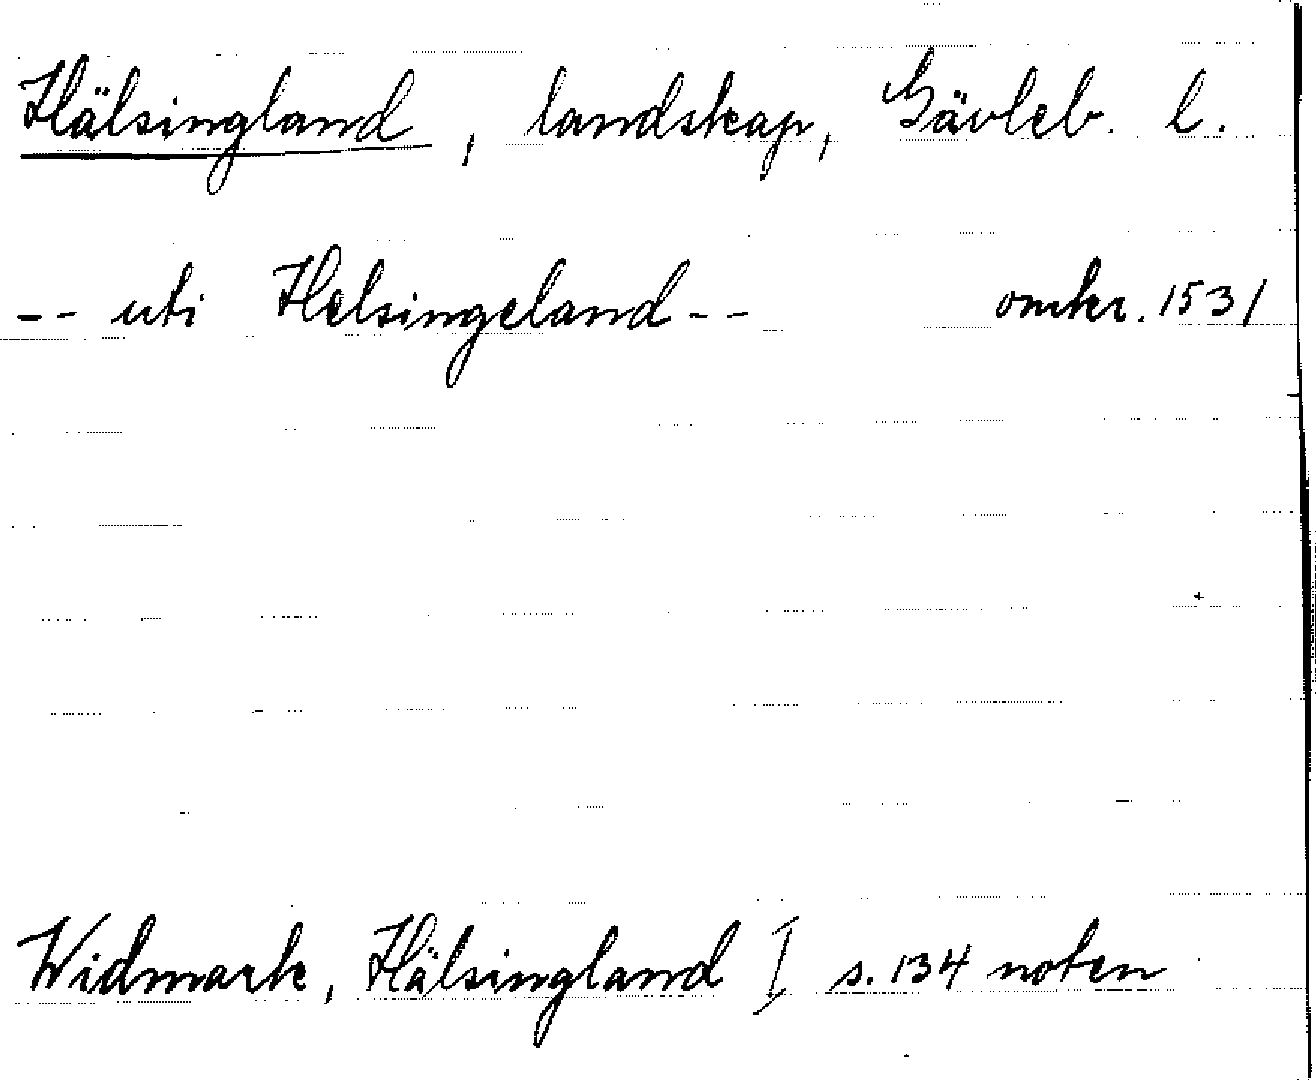 Hälsingland, landskap, Gävleb. l.
-- uti Helsingeland -- omkr. 1531
Widmark, Hälsingland I s. 134 noten